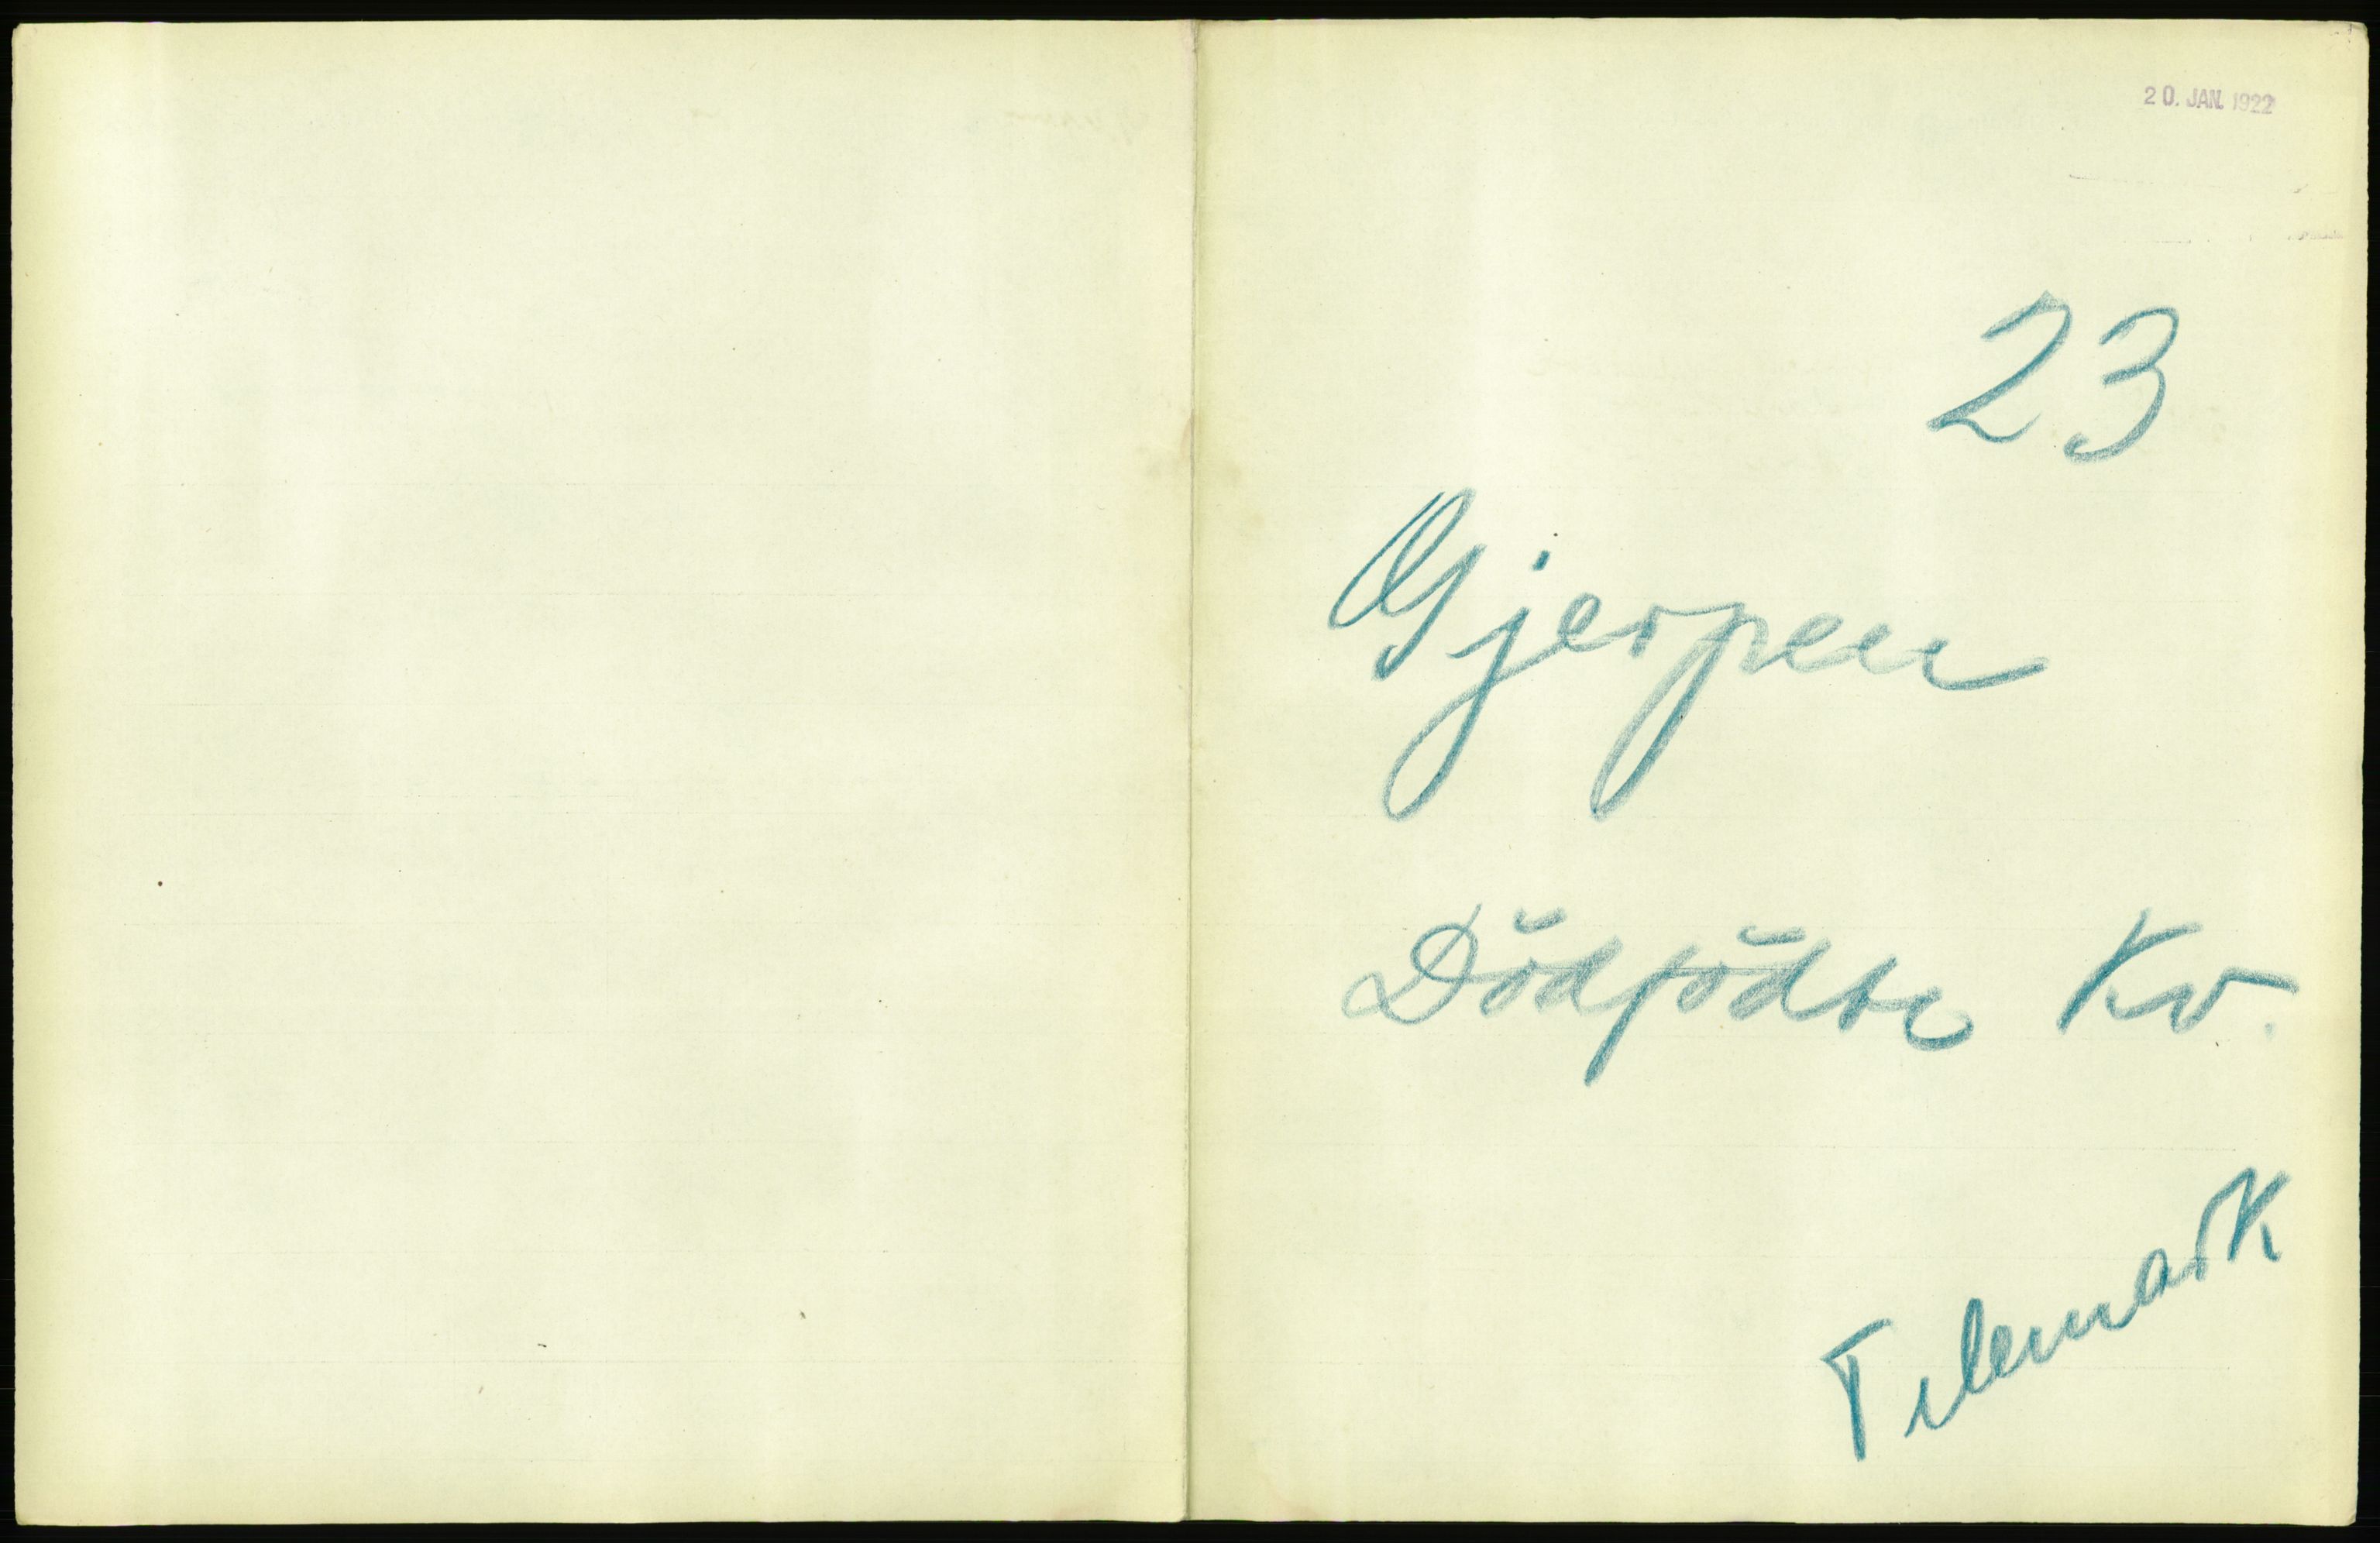 20. JAN. 1922
23
Gjerpen
Dödfödte Kv.
Telemark